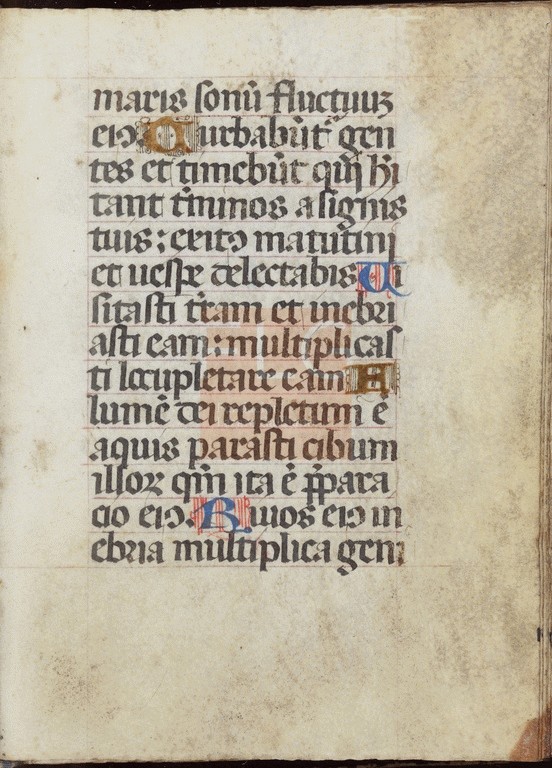 maris sonū fluctuuʒ
eiꝰ Turbabūt̉ gen
tes et timebūt qui hi̅
tant t̉minos a signis
tuis: exitꝰ matutini
et uesp̲e delectabis Ui
sitasti t̉ram et inebri
asti eam: multiplicas
ti locupletare eam F
lumē dei repletum ē
aquis parasti cibum
illoꝝ qm̄ ita ē p̄para
cio eiꝰ. Riuos eiꝰ in
ebria multiplica geni